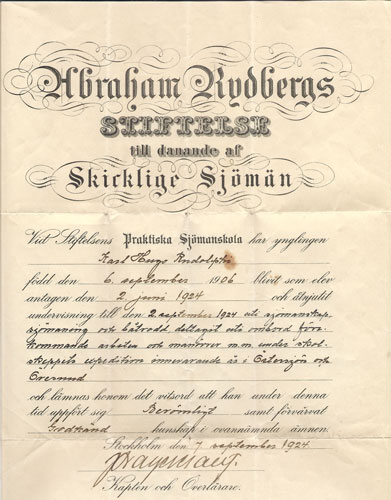 Abraham Rydbergs
STIFTELSE
till danande af
Skicklige Sjömän
Vid Stiftelsens Praktiska Sjömanskola har ynglingen
Karl Hugo Rudolph
född den 6 september 1906 blivit som elev
antagen den 2 juni 1924 och åtnjutit
undervisning till den 2 september 1924 uti sjömanskap
sjömaning och båtrodd, deltagit uti ombord före-
kommande arbeten och manövrer m.m under skol-
skeppets expedition innevarande år i Östersjön och
Öresund
och lämnas honom det vitsord att han under denna
tid uppfört sig Berömligt samt förvärvat
Godkänd kunskap i ovannämnda ämnen.
Stockholm den 7 september 1924.
Kapten och Överlärare.